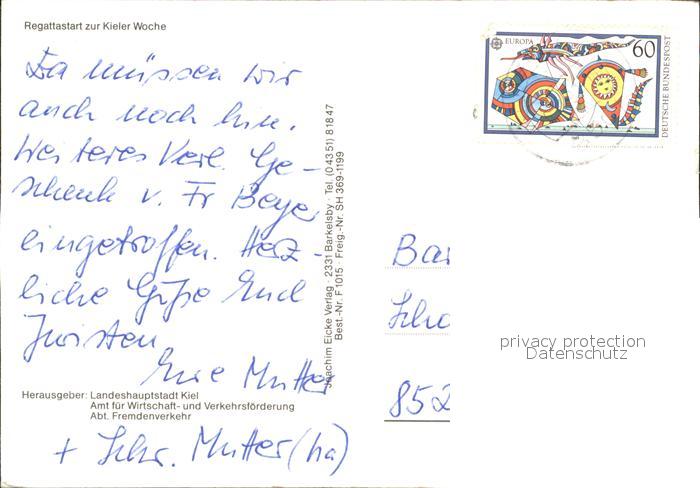 Regattastart zur Kieler Woche
Da müssen wir
auch noch hin.
Weiteres Verl. Ge-
schenk v. Fr Beyer
eingetroffen. Herz-
liche Grüße Euch
Juristen
Eure Mutter
+ Schw. Mutter (ha)
Herausgeber: Landeshauptstadt Kiel
Amt für Wirtschaft- und Verkehrsförderung
Abt. Fremdenverkehr
Joachim Eicke Verlag · 2331 Barkelsby · Tel. (0 43 51) 8 18 47
Best.-Nr. F 1015 · Freig.-Nr. SH 369-1199
EUROPA
60
DEUTSCHE BUNDESPOST
852
privacy protection
Datenschutz